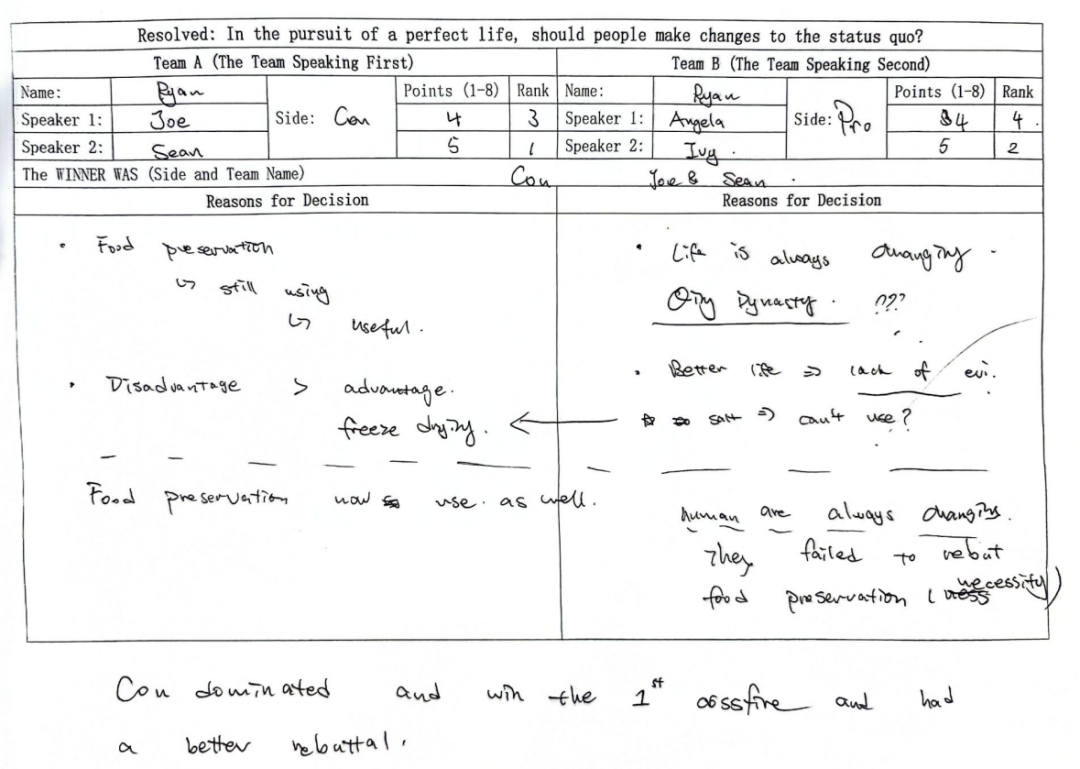 Resolved: In the pursuit of a perfect life, should people make changes to the status quo?
Team A (The Team Speaking First)
Name: Ryan
Speaker 1: Joe
Speaker 2: Sean
Side: Con
Points (1-8) Rank
4 3
5 1
Team B (The Team Speaking Second)
Name: Ryan
Speaker 1: Angela
Speaker 2: Ivy.
Side: Pro
Points (1-8) Rank
4 4.
5 2
The WINNER WAS (Side and Team Name) Con Joe & Sean.
Reasons for Decision
• Food preservation
↳ still using
↳ useful.
• Disadvantage > advantage.
freeze drying. ←
Food preservation now use. as well.
Reasons for Decision
• Life is always changing.
Qing Dynasty. ???
• Better life ⇒ lack of evi.
salt ⇒ can't use?
human are always changing.
They failed to rebut
food preservation (necessity)
Con dominated and win the 1st crossfire and had
a better rebuttal.